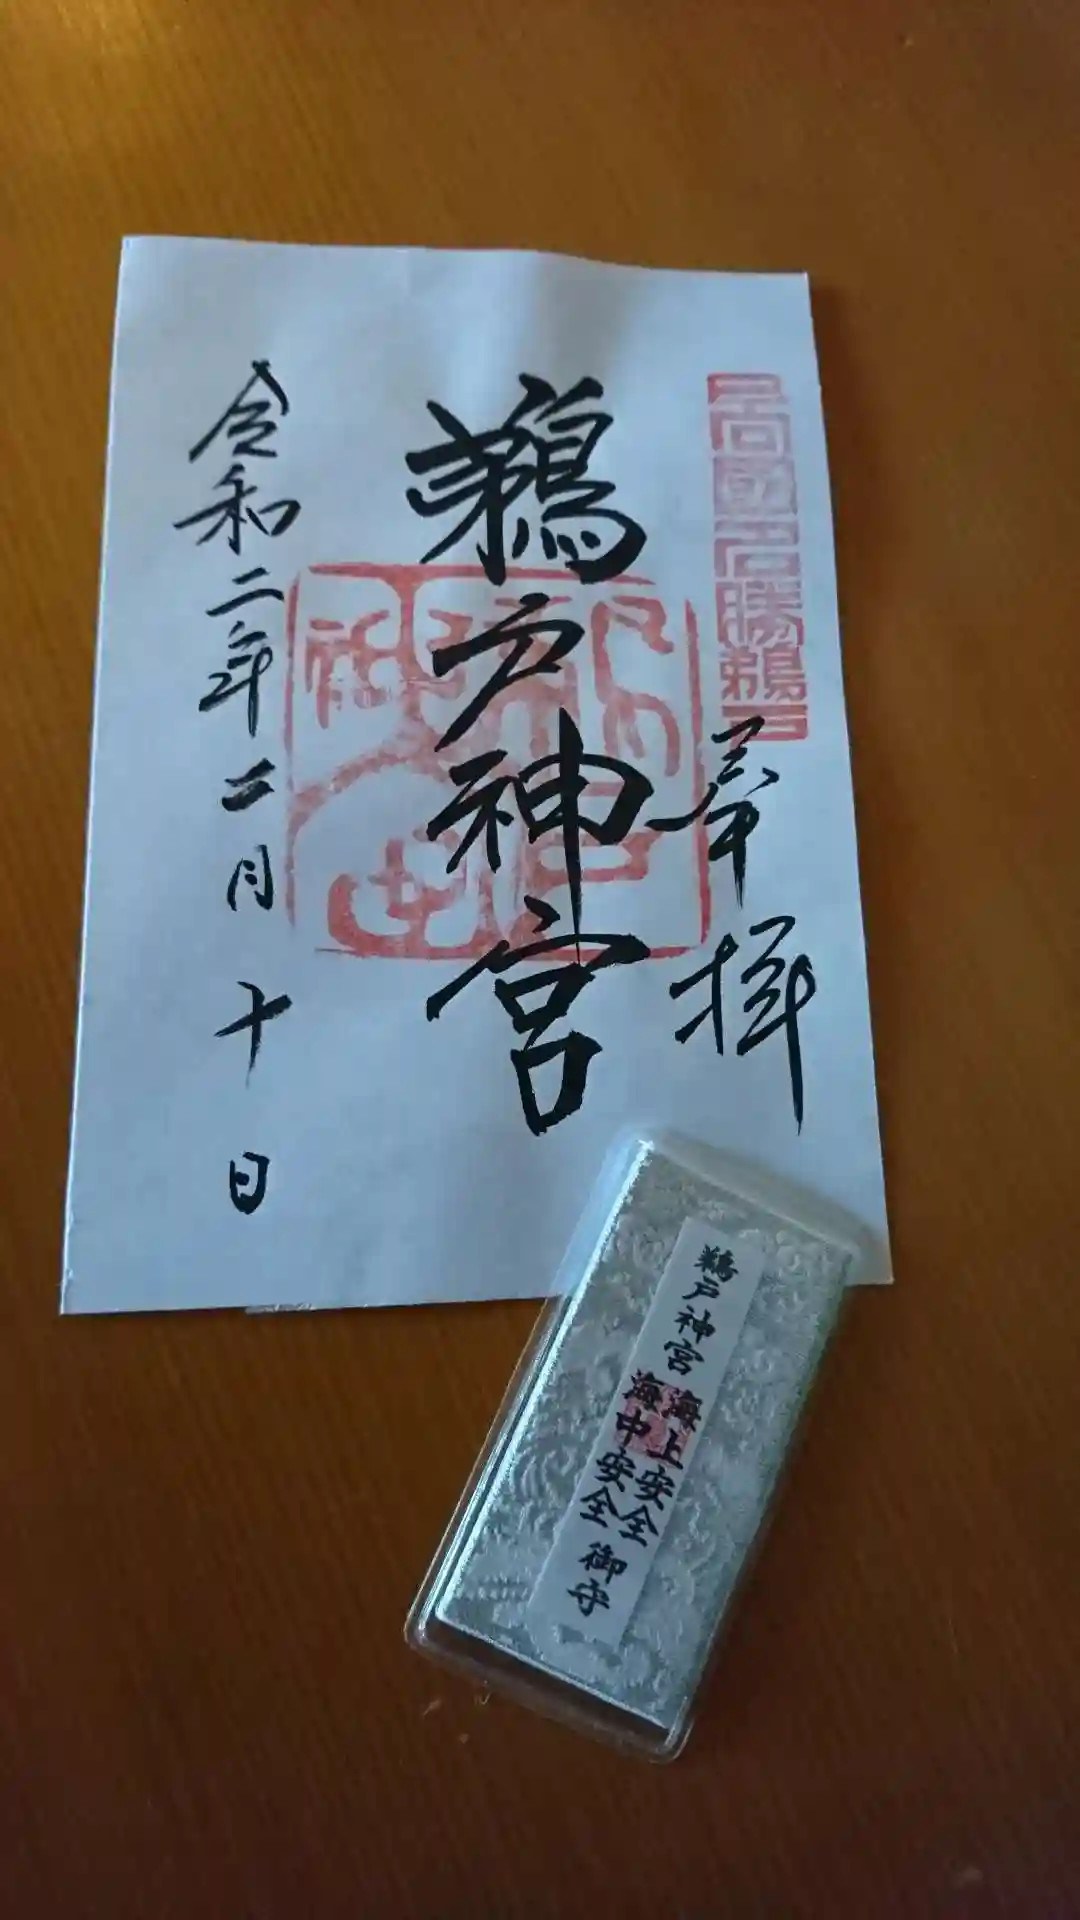 日向國名勝鵜戸
奉拝
鵜戸神宮
令和二年二月十日
鵜戸神宮
海上安全
海中安全
御守